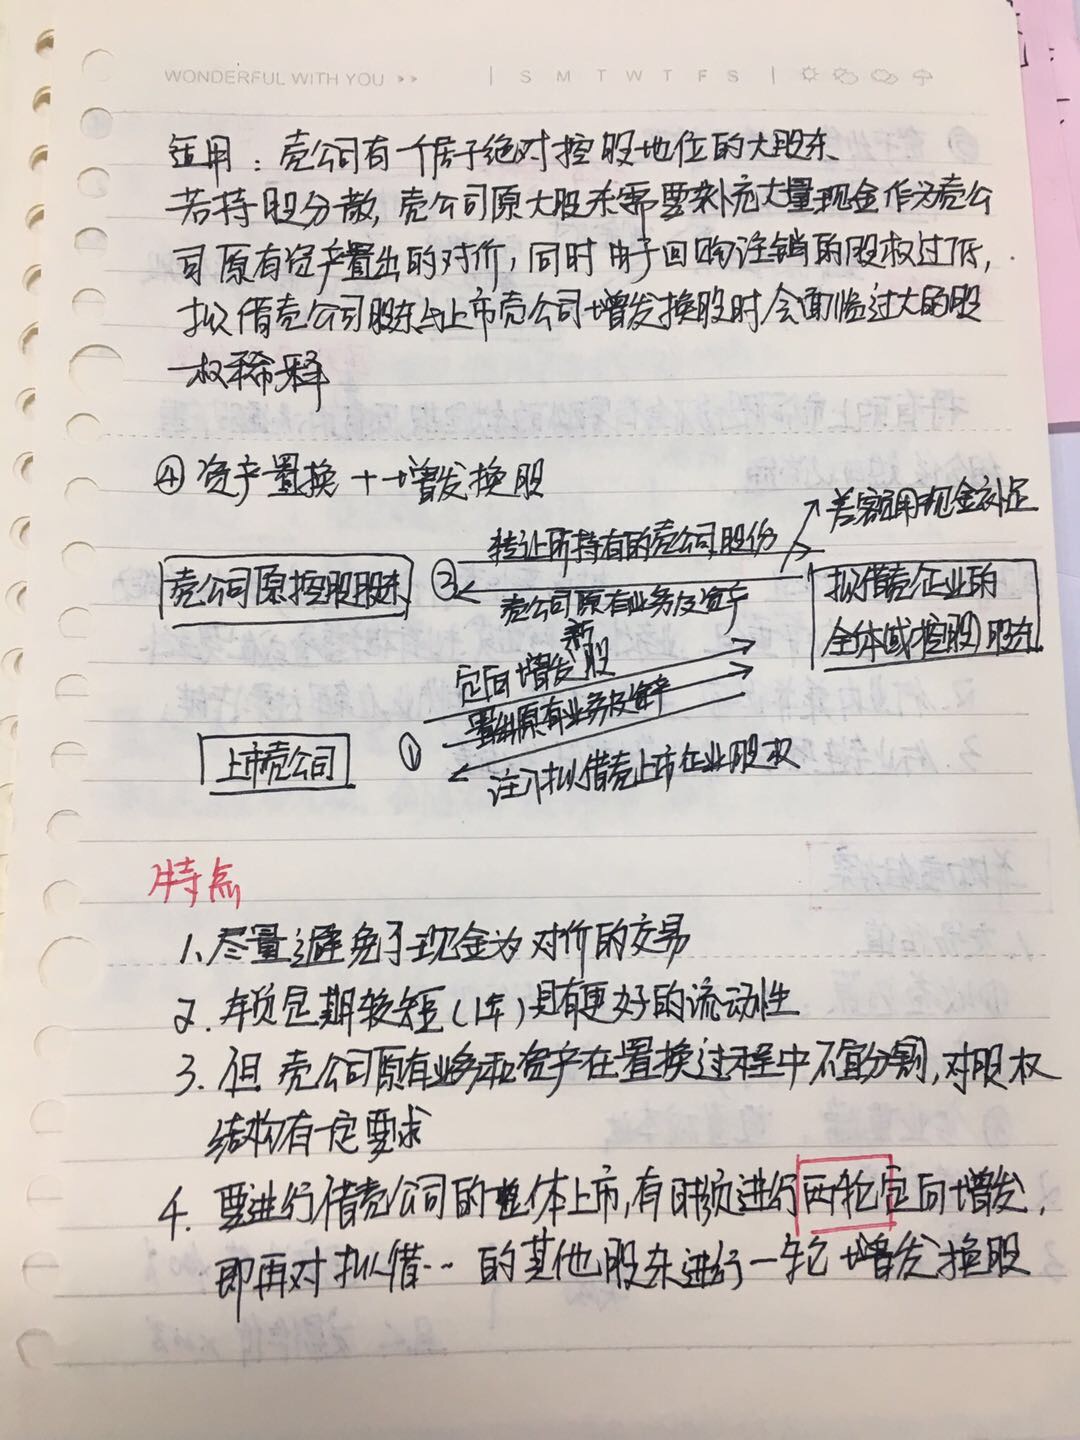 WONDERFUL WITH YOU >> | S M T W T F S |
适用：壳公司有一个居于绝对控股地位的大股东
若持股分散，壳公司原大股东需要补充大量现金作为壳公
司原有资产置出的对价，同时由于回购注销的股权过低，
拟借壳公司股东与上市壳公司增发换股时会面临过大的股
权稀释
④ 资产置换 + 增发换股
差额用现金补足
转让所持有的壳公司股份
壳公司原控股股东 ②
拟借壳企业的
全体(或控股)股东
壳公司原有业务及资产
新
定向增发股
置出原有业务及资产
上市壳公司 ①
注入拟借壳上市企业股权
特点
1. 尽量避免了现金为对价的交易
2. 锁定期较短(1年)具有更好的流动性
3. 但壳公司原有业务和资产在置换过程中不宜分割，对股权
结构有一定要求
4. 要进行借壳公司的整体上市，有时须进行两轮定向增发，
即再对拟借… 的其他股东进行一轮增发换股